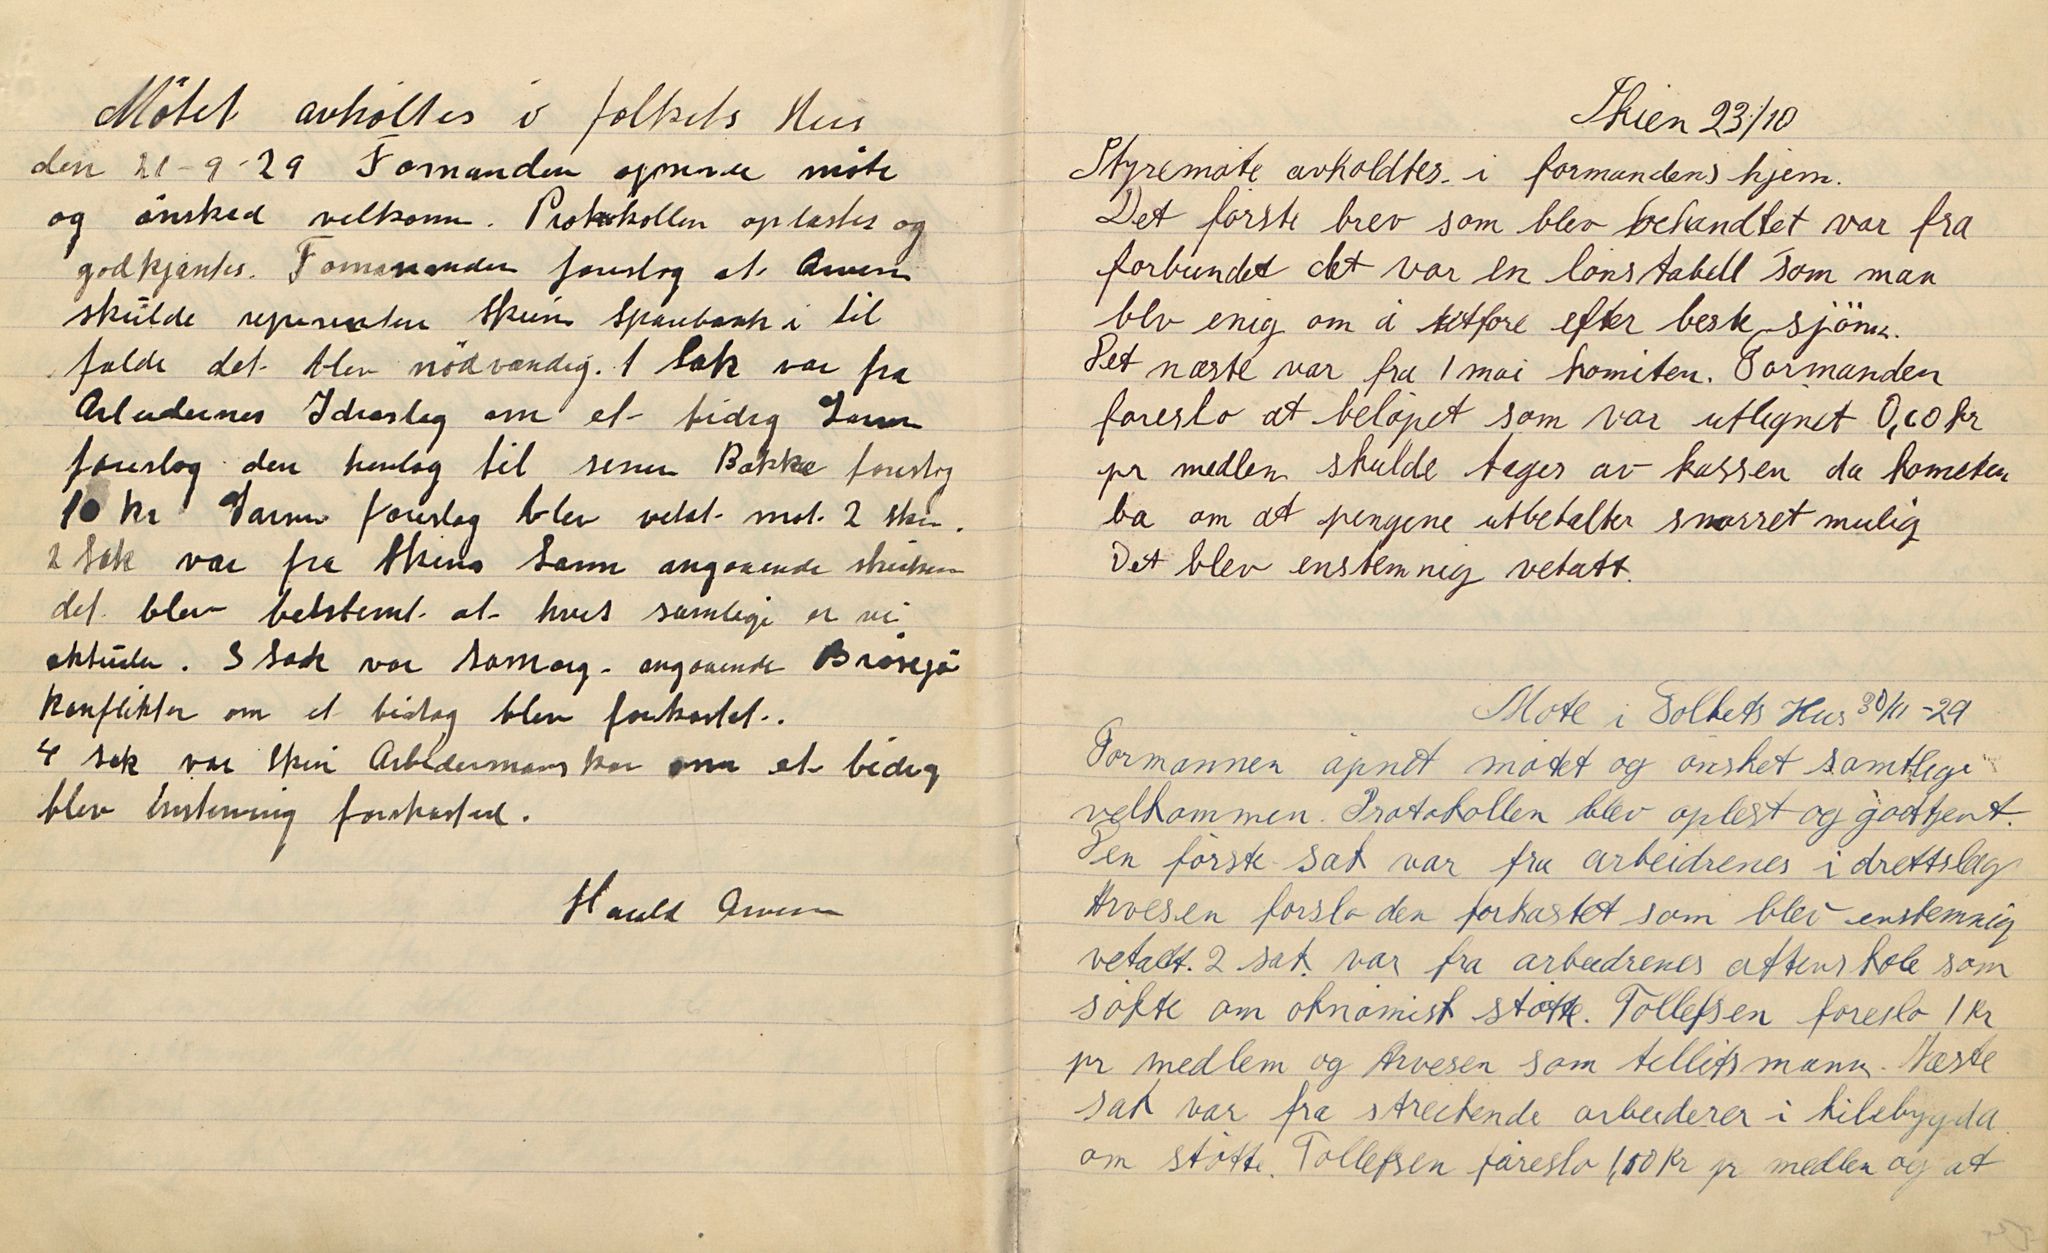 Mötet avholtes i folkets Hus
den 21-9-29 Formanden opnerne möte
og önsked velkomm. Protokollen oplastes og
godkjantes. Formanden foreslog at Arvesen
skulde representere Skiens Sparebank i til
falde det blev nödvandig. 1 Sak var fra
Arbeidernes Idraslag om et bidrag
foreslog den henlag til senere Bakke foreslog
10 kr foreslag blev vetat mot 2 stem.
2 Sak var fra Skiens angaaende
det blev betstemt at hvis samlige er vi
aktuelle. 3 Sak var Samorg. angaaende
Konflikten om et bidrag blev forkastet.
4 sak var Skien Arbedermans kor om et bidrag
blev enstemmig forkasted.
Harald Arvesen
Skien 23/10
Styremöte avholdtes i formandens hjem.
Det förste brev som blev behandlet var fra
forbundet det var en lönstabell som man
blv enig om å utföre efter beste skjönn.
Det næste var fra 1 mai komiten. Formanden
foreslo at belöpet som var utlignet 0,10 kr
pr medlem skulde tages av kassen da kometen
ba om at pengene utbetaltes snarest mulig
Det blev enstemnig vetatt.
Möte i Folkets Hus 30/11-29
Formannen åpnet mötet og önsket samtlige
velkommen. Protokollen blev oplest og godkjent.
Den förste sak var fra arbeidrenes idrettslag
Arvesen forslo den forkastet som blev enstemnig
vetatt. 2 sak var fra arbeidrenes aftenskole som
sökte om öknomisk stötte. Tollefsen foreslo 1 kr
pr medlem og Arvesen som tellitsmann. Næste
sak var fra streikende arbeiderer i kilebygda
om stötte. Tollefsen föreslo 1,00 kr pr medlem og at